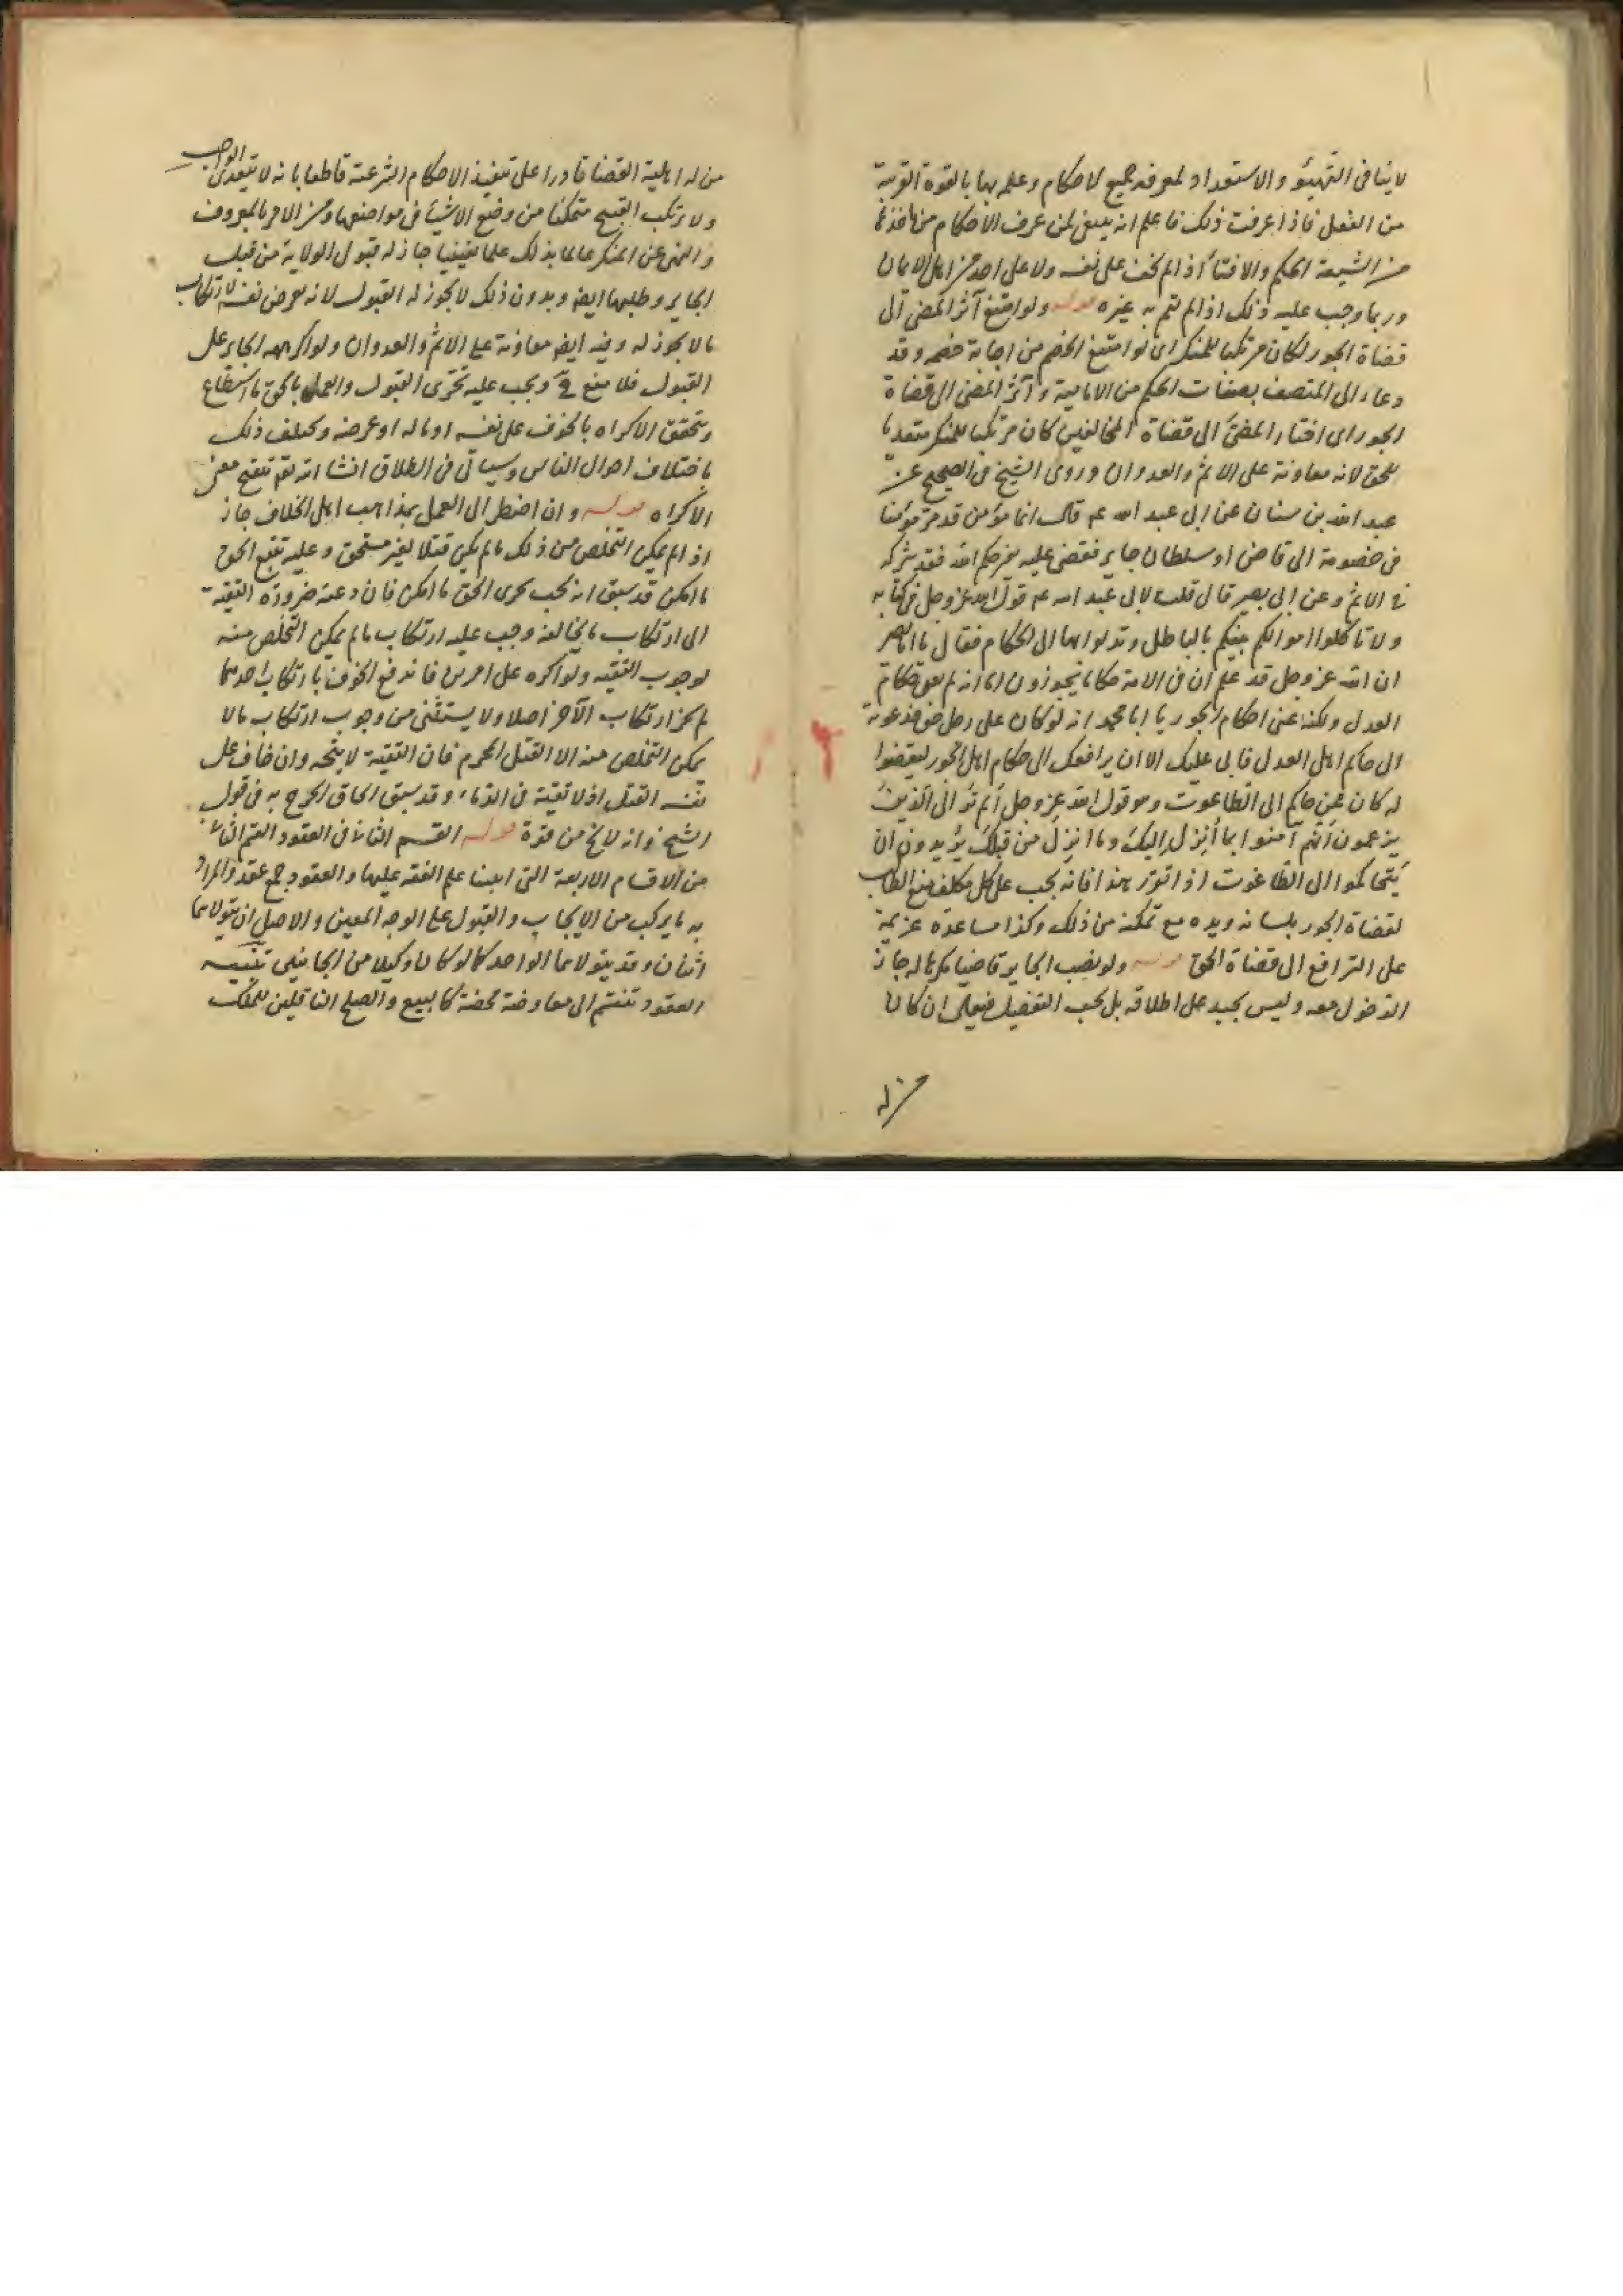 لا ينافى التهيئو والاستعداد لمعرفة جميع الاحكام وعلمه بها بالقوة القريبة
من الفعل فاذا عرفت ذلك فاعلم انه ينبغى لمن عرف الاحكام من ماخذها
من الشيعة الحكم والافتاء اذا لم يخف على نفسه ولا على احد من اهل الايمان
وربما وجب عليه ذلك اذا لم يقم به غيره قوله ولو امتنع آثر المضى الى
قضاة الجور لكان مرتكبا للمنكر اى لو امتنع الخصم من اجابة خصمه وقد
دعاه الى المتصف بصفات الحكم من الامامية وآثر المضى الى قضاة
الجور اى اختار المضى الى قضاة المخالفين كان مرتكبا للمنكر متعديا
للحق لانه معاونة على الاثم والعدوان وروى الشيخ فى الصحيح عن
عبد الله بن سنان عن ابى عبد الله ع قال ايما مؤمن قدم مؤمنا
فى خصومة الى قاض او سلطان جاير فقضى عليه بغير حكم الله فقد شركه
فى الاثم وعن ابى بصير قال قلت لابى عبد الله ع قول الله عز وجل فى كتابه
ولا تاكلوا اموالكم بينكم بالباطل وتدلوا بها الى الحكام فقال يا ابا بصير
ان الله عز وجل قد علم ان فى الامة حكاما يجوزون اما انه لم يعن حكام
العدل ولكنه عنى احكام الجور يا ابا محمد انه لو كان على رجل حق فدعوته
الى حاكم اهل العدل فابى عليك الا ان يرافعك الى حكام اهل الجور ليقضوا
له كان ممن حاكم الى الطاغوت وهو قول الله عز وجل الم تر الى الذين
يزعمون انهم آمنوا بما اُنزل اليك وما انزل من قبلك يريدون ان
يتحاكموا الى الطاغوت اذا تقرر هذا فانه يجب على كل مكلف منع الطالب
لقضاة الجور بلسانه ويده مع تمكنه من ذلك وكذا مساعدة غريمه
على الترافع الى قضاة الحق قوله ولو نصب الجاير قاضيا مكرها له جاز
الدخول معه وليس بجيد على اطلاقه بل يجب التفصيل فيه ان كان
من له
من له اهلية القضا قادرا على تنفيذ الاحكام الشرعية قاطعا بانه لا يتعدى الواجب
ولا يرتكب القبيح متمكنا من وضع الاشياء فى مواضعها ومن الامر بالمعروف
والنهى عن المنكر عالما بذلك علما يقينيا جاز له قبول الولاية من قبل
الجاير وطلبها ايضا وبدون ذلك لا يجوز له القبول لانه يعرض نفسه لارتكاب
ما لا يجوز له وفيه ايضا معاونة على الاثم والعدوان ولو اكرهه الجاير على
القبول فلا منع فى ويجب عليه تحرى القبول والعمل بالحق ما استطاع
ويتحقق الاكراه بالخوف على نفسه او ماله او عرضه ويختلف ذلك
باختلاف احوال الناس وسياتى فى الطلاق انشا الله تعالى تنقيح معنى
الاكراه قوله وان اضطر الى العمل بمذاهب اهل الخلاف جاز
اذا لم يمكن التخلص من ذلك ما لم يكن قتلا لغير مستحق وعليه تتبع الحق
ما امكن قد سبق انه يجب تحرى الحق ما امكن فان دعته ضرورة التقية
الى ارتكاب ما يخالفه وجب عليه ارتكاب ما لم يمكن التخلص منه
لوجوب التقية ولو اكره على امرين فاندفع الخوف بارتكاب احدهما
لم يجز ارتكاب الآخر اصلا ولا يستثنى من وجوب ارتكاب ما لا
يمكن التخلص منه الا القتل المحرم فان التقية لا يتجه وان خاف على
نفسه القتل اذ لا تقية فى الدماء وقد سبق الحاق الجرح به فى قول
الشيخ وانه لا يخ من قوة قوله القسم الثانى فى العقود القسم الثانى
من الاقسام الاربعة التى ابتنا علم الفقه عليها والعقود جمع عقد والمراد
به ما يركب من الايجاب والقبول على الوجه المعين والاصل ان يتولاهما
اثنان وقد يتولاهما الواحد كما لو كان وكيلا من الجانبين تنبيه
العقود تنقسم الى معاوضة محضة كالبيع والصلح الناقلين للملك